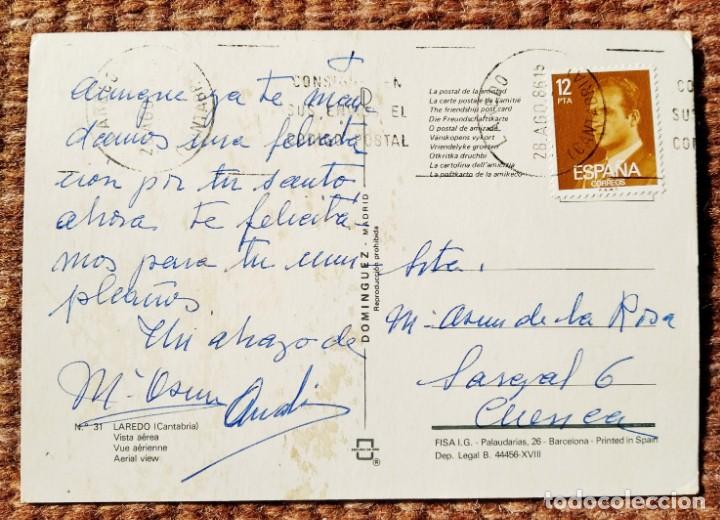 Aunque ya te man
damos una felicita
cion por tu santo
ahora te felicita-
mos para tu cum
pleaños
Un abrazo de
Mª Asun
Nº 31 LAREDO (Cantabria)
Vista aérea
Vue aérienne
Aerial view
DOMINGUEZ - MADRID
Reproducción prohibida
CONSIGNE
SU EL
CODIGO POSTAL
La postal de la amistad
La carte postale de l'amitié
The friendship post card
Die Freundschaftskarte
O postal de amizade
Vänskapens vykort
Vriendelyke groeten
Otkritska druchbi
La cartolina dell'amicizia
La poŝtkarto de la amikeco
LAREDO
28.AGO.86
(CANTABRIA)
CO
SU
CO
12
PTA
ESPAÑA
CORREOS
Srta.
Mª Asun de la Rosa
Sargal 6
Cuenca
FISA I.G. - Palaudarias, 26 - Barcelona - Printed in Spain
Dep. Legal B. 44456-XVIII
todocoleccion